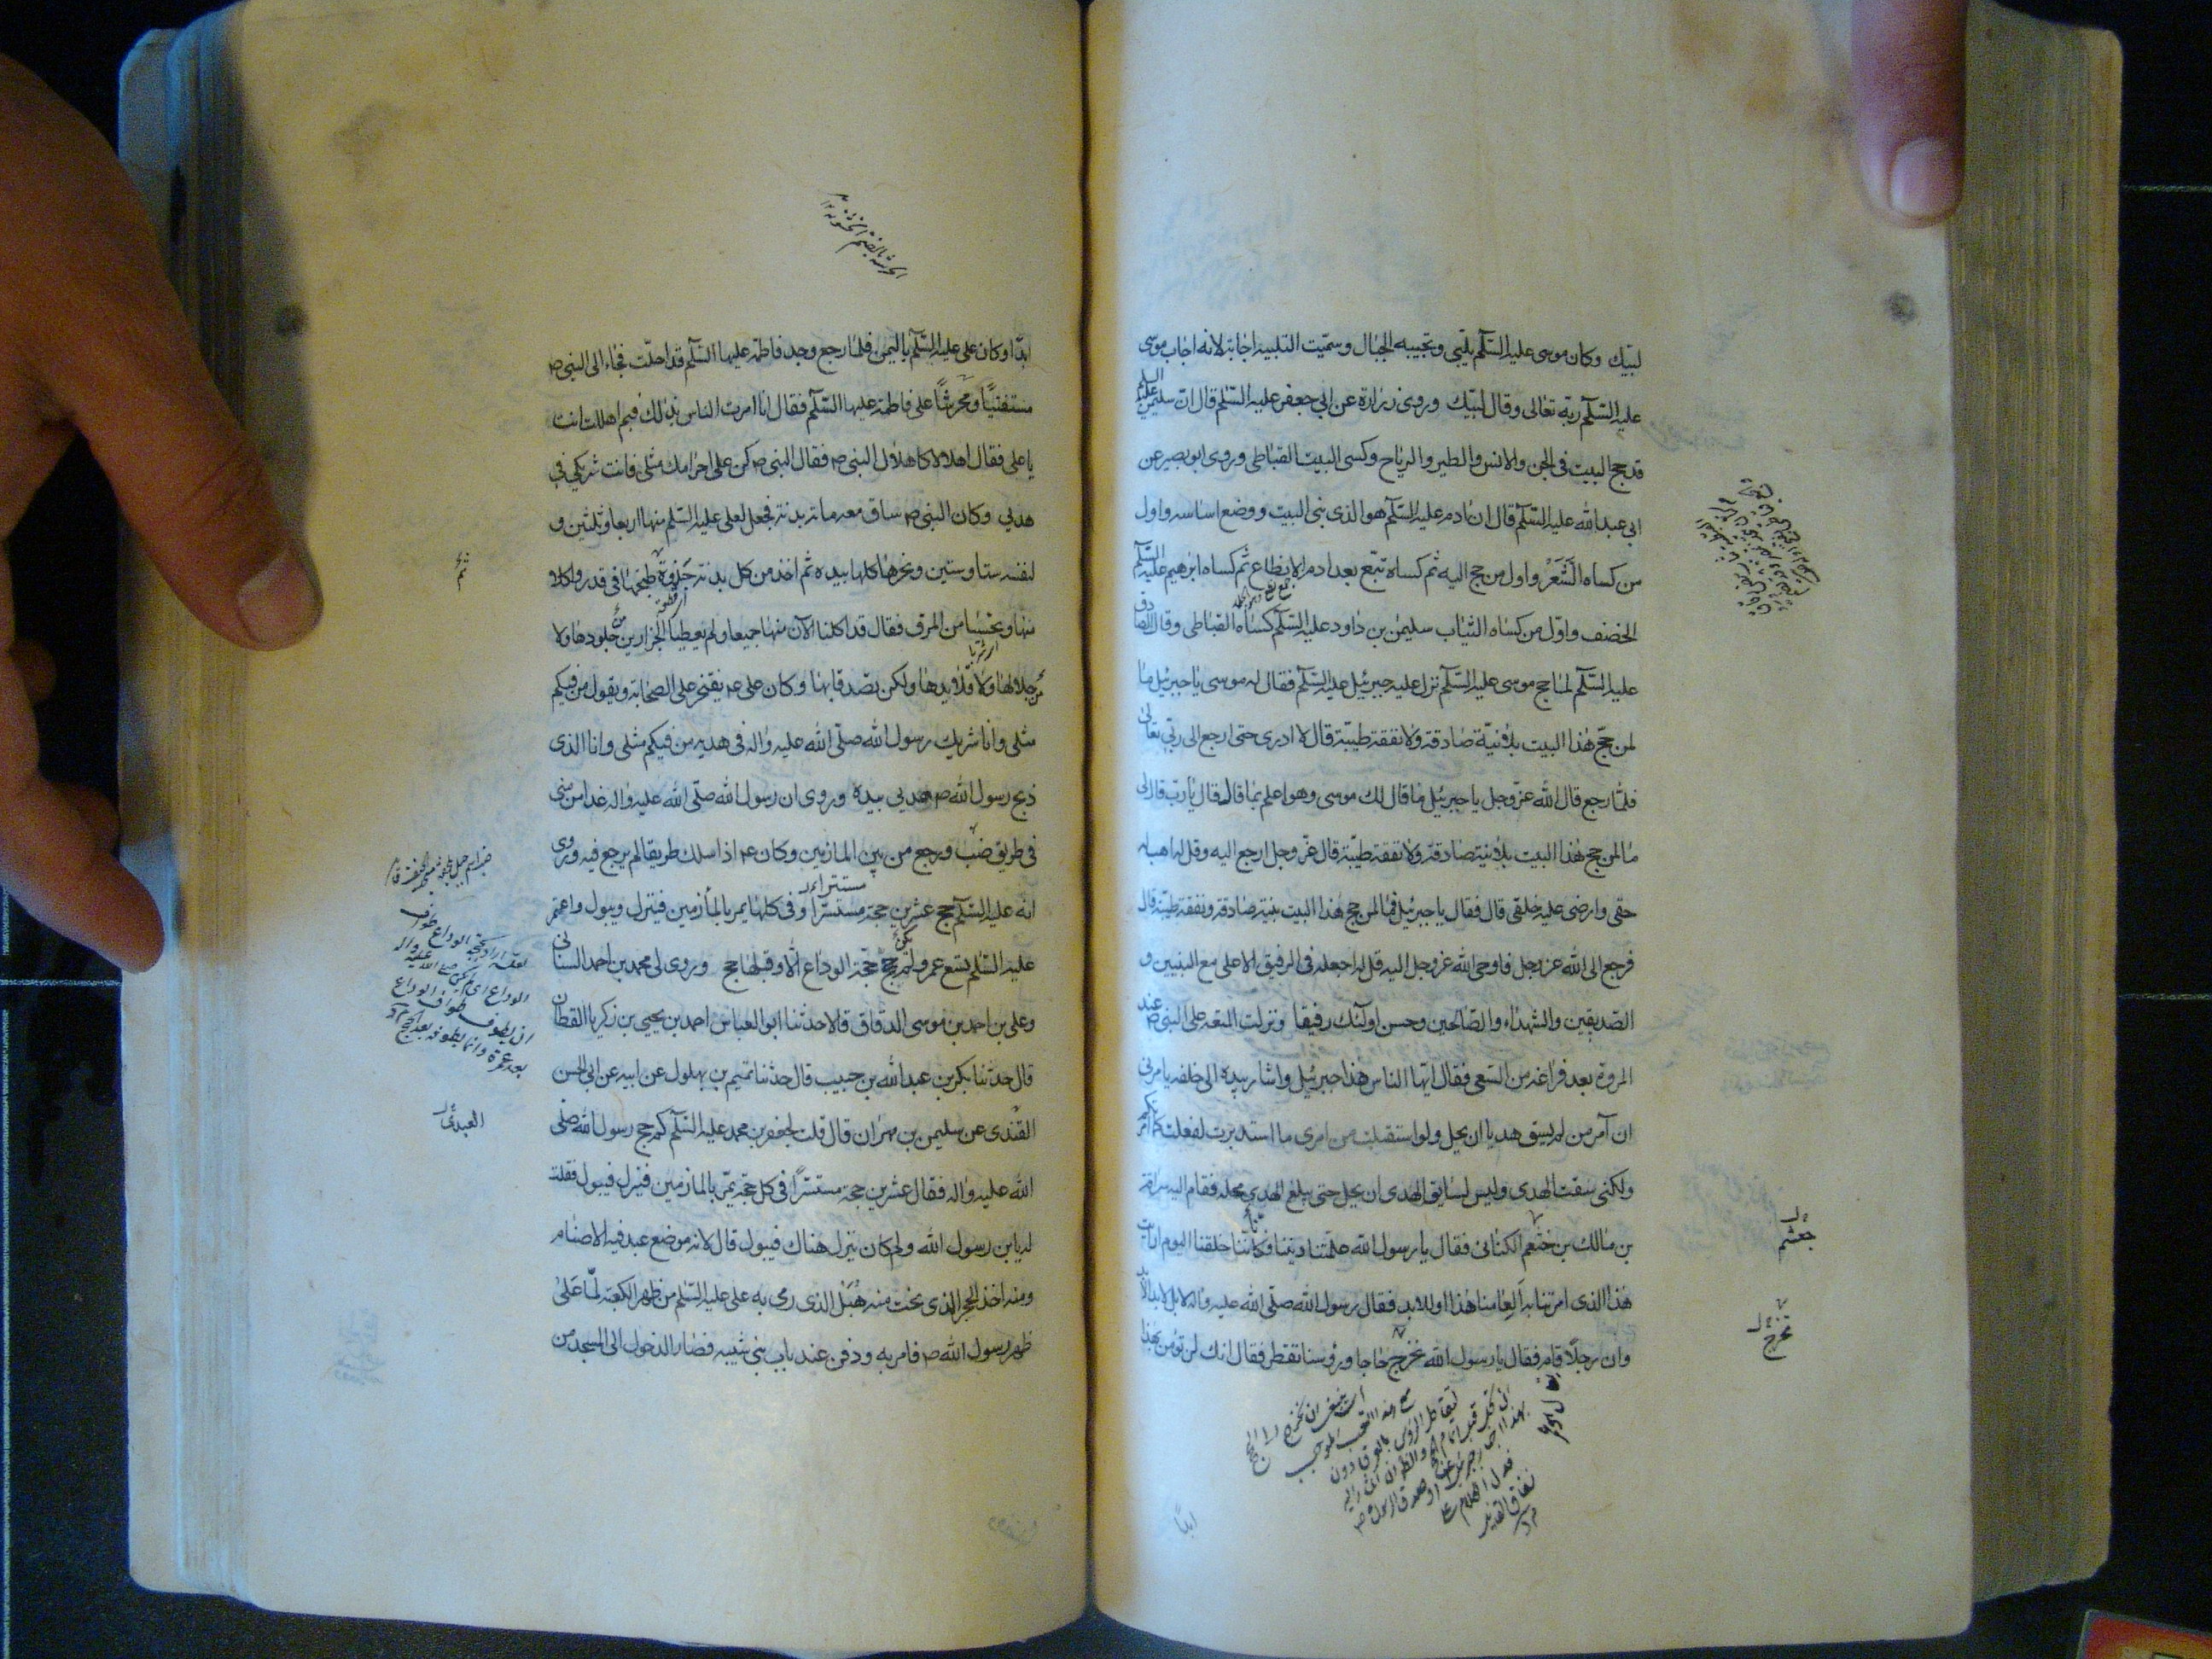 لبيك وكان موسى عليه السلم يلبى وتجيبه الجبال وسميت التلبيه اجابة لانه اجاب موسى
عليه السلم ربه تعالى وقال لبيك وروى زرارة عن ابي جعفر عليه السلم قال ان سليمن عليه السلم
قد حج البيت فى الجن والانس والطير والرياح وكسى البيت القباطى وروى ابو بصير عن
ابى عبد الله عليه السلم قال ان ادم عليه السلم هو الذى بنى البيت ووضع اساسه واول
من كساه الشعر واول من حج اليه ثم كساه تبع بعد ادم الانطاع ثم كساه ابرهيم عليه السلم
الخصف واول من كساه الثياب سليمن بن داود عليه السلم كساه القباطى وقال الصادق
عليه السلم لما حج موسى عليه السلم نزل عليه جبرئيل عليه السلم فقال له موسى يا جبرئيل ما
لمن حج هذا البيت بلا نية صادقة ولا نفقة طيبة قال لا ادرى حتى ارجع الى ربى تعالى
فلما رجع قال الله عز وجل يا جبرئيل ما قال لك موسى وهو اعلم بما قال قال يا رب قال لى
ما لمن حج هذا البيت بلا نية صادقة ولا نفقة طيبة قال عز وجل ارجع اليه وقل له اهب له
حقى وارضى عليه خلقى قال فقال يا جبرئيل فما لمن حج هذا البيت بنية صادقة ونفقة طيبة قال
فرجع الى الله عز وجل فاوحى الله عز وجل اليه قل له اجعله فى الرفيق الاعلى مع النبيين و
الصديقين والشهداء والصالحين وحسن اولئك رفيقا ونزلت المتعة على النبى ص عند
المروة بعد فراغه من السعى فقال ايها الناس هذا جبرئيل واشار بيده الى خلفه يامرنى
ان آمر من لم يسق هديا ان يحل ولو استقبلت من امرى ما استدبرت لفعلت كما امرتكم
ولكنى سقت الهدى وليس لسايق الهدى ان يحل حتى يبلغ الهدى محله فقام اليه سراقة
بن مالك بن خثعم الكنانى فقال يا رسول الله علمتنا ديننا فكاننا خلقنا اليوم ارايت
هذا الذى امرتنا به العامنا هذا او للابد فقال رسول الله صلى الله عليه واله لا بل لابد الابد
وان رجلا قام فقال يا رسول الله نخرج حاجا ورؤسنا تقطر فقال انك لن تؤمن بهذا
جعشم
نخرج
ابدا
ابدا وكان على عليه السلم باليمن فلما رجع وجد فاطمة عليها السلم قد احلت فجاء الى النبى ص
مستفتيا ومحرشا على فاطمة عليها السلم فقال انا امرت الناس بذلك فبم اهللت انت
يا على فقال اهلالا كاهلال النبى ص فقال النبى ص كن على احرامك مثلى فانت شريكى فى
هديى وكان النبى ص ساق معه ماته بدنة فجعل لعلى عليه السلم منها اربعا وثلثين و
لنفسه ستا وستين ونحرها كلها بيده ثم اخذ من كل بدنة جذوة طبخها فى قدر واكلا
منها وتحسيا من المرق فقال قد اكلنا الآن منها جميعا ولم يعطيا الجزارين جلودها ولا
جلالها ولا قلايدها ولكن تصدقا بها وكان على ع يفتخر على الصحابة ويقول من فيكم
مثلى وانا شريك رسول الله صلى الله عليه واله فى هديه من فيكم مثلى وانا الذى
ذبح رسول الله ص هديى بيده وروى ان رسول الله صلى الله عليه واله غدا من منى
فى طريق ضب ورجع من بين المازمين وكان ع اذا سلك طريقا لم يرجع فيه وروى
انه عليه السلم حج عشرين حجة مستسرا وفى كلها يمر بالمأزمين فينزل ويبول واعتمر
عليه السلم تسع عمر ولم يحج حجة الوداع الا وقبلها حج وروى لى محمد بن احمد السنانى
وعلى بن احمد بن موسى الدقاق قالا حدثنا ابو العباس احمد بن يحيى بن زكريا القطان
قال حدثنا بكر بن عبد الله بن حبيب قال حدثنا تميم بن بهلول عن ابيه عن ابى الحسن
القندى عن سليمن بن مهران قال قلت لجعفر بن محمد عليه السلم كم حج رسول الله صلى
الله عليه واله فقال عشرين حجة مستسرا فى كل حجة يمر بالمازمين فينزل فيبول فقلت
له يابن رسول الله ولم كان ينزل هناك فيبول قال لانه موضع عبد فيه الاصنام
ومنه اخذ الحجر الذى نحت منه هبل الذى رمى به على عليه السلم من ظهر الكعبة لما على
ظهر رسول الله ص فامر به ودفن عند باب بنى شيبه فصار الدخول الى المسجد من
العبدى